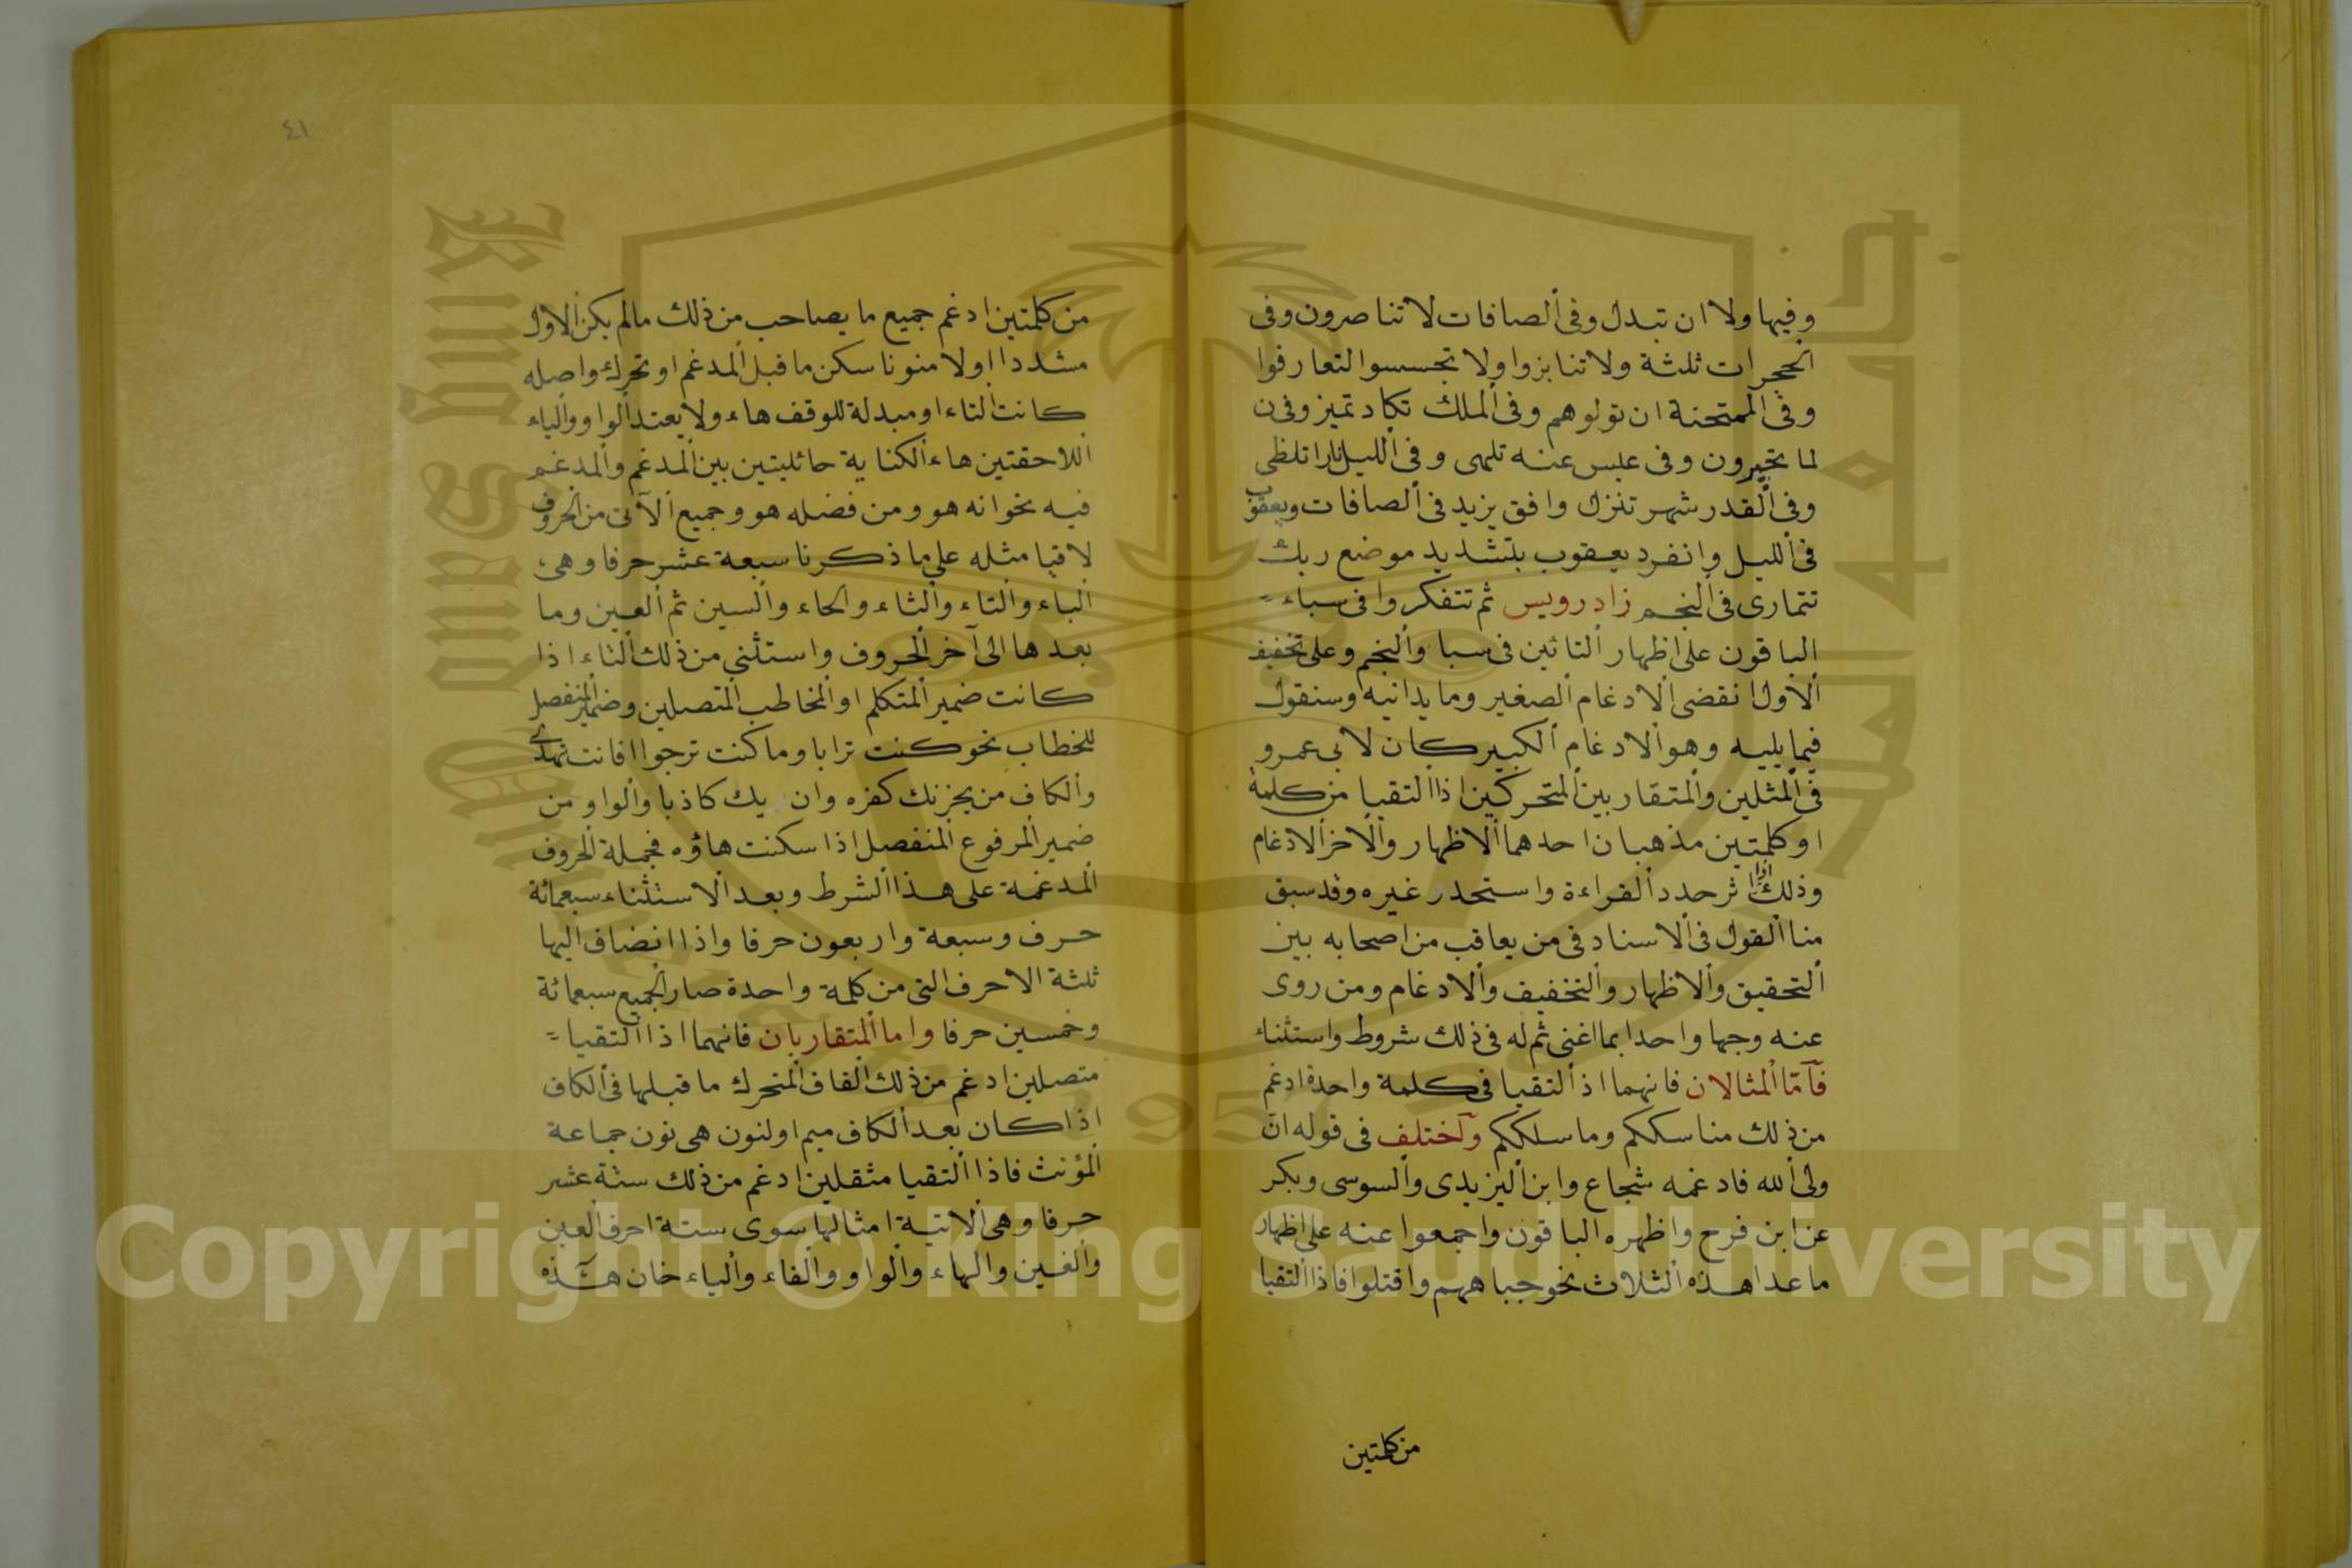 وفيها ولا ان تبدل وفى ألصافات لا تناصرون وفى
ألحجرات ثلثة ولا تنابزوا ولا تجسسوا لتعارفوا
وفى ألممتحنة ان تولوهم وفى ألملك تكاد تميز وفى ن
لما تخيرون وفى عبس عنه تلهى وفى ألليل نارا تلظى
وفى ألقدر شهر تنزل وافق يزيد فى ألصافات ويعقوب
فى ألليل وانفرد يعقوب بتشديد موضع ربك
تتمارى فى ألنجم زاد رويس ثم تتفكروا فى سباء
الباقون على اظهار ألتائين فى سبا وألنجم وعلى تخفيف
ألاول انقضى ألادغام ألصغير وما يدانيه وسنقول
فيما يليه وهو ألادغام ألكبير كان لابى عمرو
فى ألمثلين وألمتقاربين ألمتحركين اذا ألتقيا من كلمة
او كلمتين مذهبان احدهما ألاظهار وألاخر ألادغام
وذلك اذا اثر حدد ألقراءة واستحدر غيره وقد سبق
منا ألقول فى ألاسناد فى من يعاقب من اصحابه بين
ألتحقيق وألاظهار وألتخفيف وألادغام ومن روى
عنه وجها واحدا بما اغنى ثم له فى ذلك شروط واستثناء
فآمّا ألمثالان فانهما اذ ألتقيا فى كلمة واحدة ادغم
من ذلك مناسككم وما سلككم وآختلف فى قوله انّ
ولى ألله فادغمه شجاع وابن أليزيدى وألسوسى وبكر
عن ابن فرح واظهره الباقون واجمعوا عنه على اظهار
ما عدا هذه ألثلاث نحو جباههم واقتتلوا فاذا ألتقيا
من كلمتين
٤١
من كلمتين ادغم جميع ما يصاحب من ذلك مالم يكن ألاول
مشددا اولا منونا سكن ما قبل ألمدغم او تحرك واصله
كانت ألتاء او مبدلة للوقف هاء ولا يعتد ألواو وألياء
أللاحقتين هاء ألكناية حائليتين بين ألمدغم وألمدغم
فيه نحو انه هو ومن فضله هو وجميع ألآتى من ألحروف
لاقيا مثله على ما ذكرنا سبعة عشر حرفا وهى
ألباء وألتاء وألثاء وألحاء وألسين ثم ألعين وما
بعدها الى آخر ألحروف واستثنى من ذلك ألتاء اذا
كانت ضمير ألمتكلم او ألمخاطب ألمتصلين وضمير ألمنفصل
للخطاب نحو كنت ترابا وما كنت ترجوا افانت تهدى
وألكاف من يحزنك كفره وان يك كاذبا وألواو من
ضمير ألمرفوع ألمنفصل اذا سكنت هاؤه فجملة ألحروف
ألمدغمة على هذا ألشرط وبعد ألاستثناء سبعمائة
حرف وسبعة واربعون حرفا واذا انضاف اليها
ثلثة الاحرف التى من كلمة واحدة صار ألجميع سبعمائة
وخمسين حرفا واما ألمتقاربان فانهما اذا ألتقيا
متصلين ادغم من ذلك ألقاف ألمتحرك ما قبلها فى ألكاف
اذا كان بعد ألكاف ميم او لنون هى نون جماعة
ألمؤنث فاذا ألتقيا مثقلين ادغم من ذلك ستة عشر
حرفا وهى ألاتية امثالها سوى ستة احرف ألعين
وألغين والهاء وألواو وألفاء وألياء خان هذه
Copyright © King Saud University
King Saud University
1957